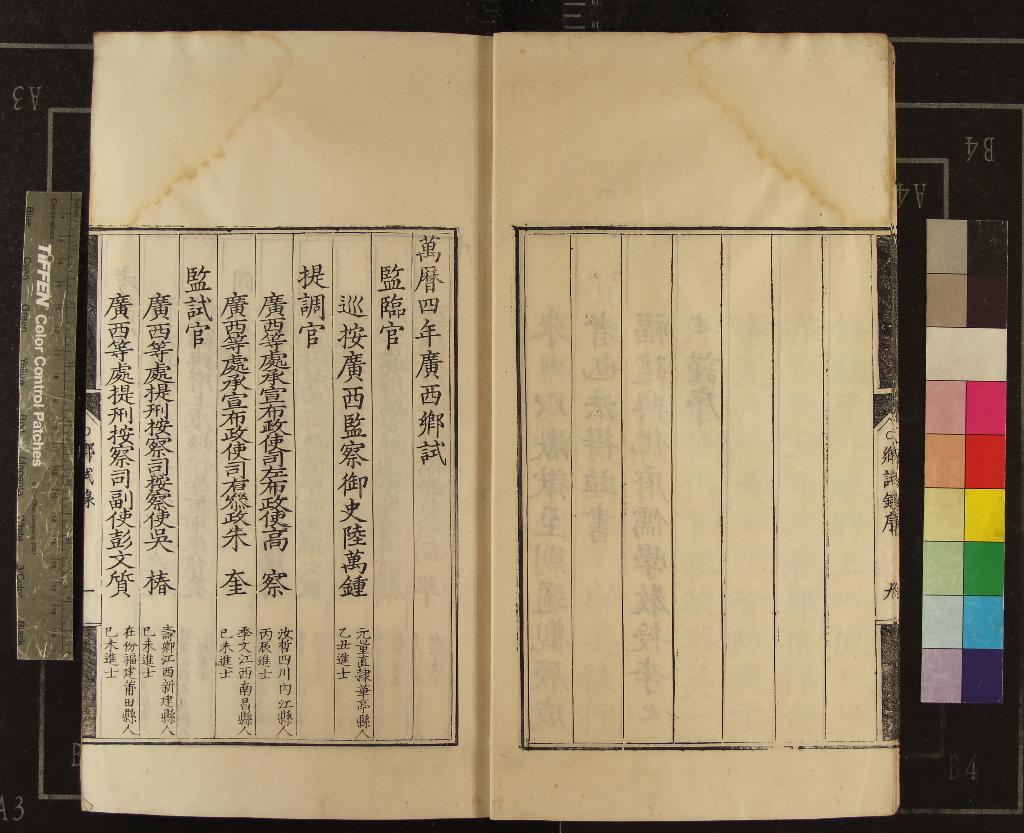 萬曆四年廣西鄉試
監臨官
巡按廣西監察御史陸萬鍾
元量直隸華亭縣人
乙丑進士
提調官
廣西等處承宣布政使司左布政使高 察
汝哲四川內江縣人
丙辰進士
廣西等處承宣布政使司右叅政朱 奎
季文江西南昌縣人
己未進士
監試官
廣西等處提刑按察司按察使吳 椿
壽卿江西新建縣人
己未進士
廣西等處提刑按察司副使彭文質
在份福建莆田縣人
己未進士
鄉試錄
一
鄉試錄序
九
TIFFEN Color Control Patches
A3
B4
A4
B4
A3